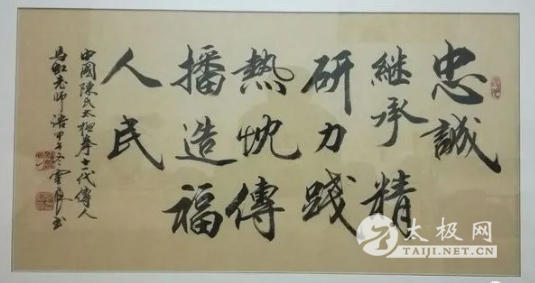 忠誠
繼承精
研力踐
熱忱傳
播造福
人民
中國陳氏太極拳十一代傳人
馬虹老師語甲午冬書
太极网
TAIJI.NET.CN